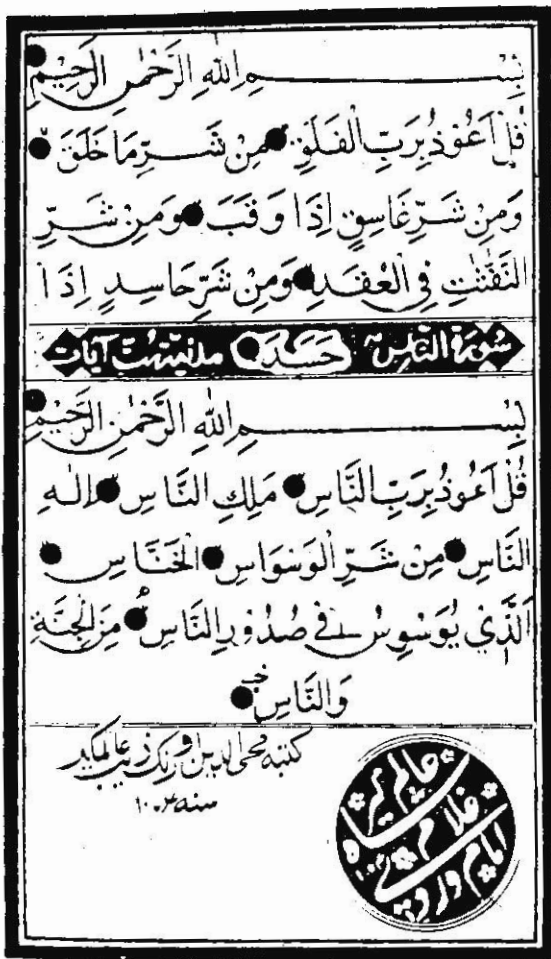 بِسْمِ اللهِ الرَّحْمٰنِ الرَّحِيْمِ
قُلْ اَعُوْذُ بِرَبِّ الْفَلَقِ مِنْ شَرِّ مَا خَلَقَ
وَمِنْ شَرِّ غَاسِقٍ اِذَا وَقَبَ وَمِنْ شَرِّ
النَّفّٰثٰتِ فِي الْعُقَدِ وَمِنْ شَرِّ حَاسِدٍ اِذَا
سُورَة النَّاسِ حَسَدَ مدنية ست آيات
بِسْمِ اللهِ الرَّحْمٰنِ الرَّحِيْمِ
قُلْ اَعُوْذُ بِرَبِّ النَّاسِ مَلِكِ النَّاسِ اِلٰهِ
النَّاسِ مِنْ شَرِّ الْوَسْوَاسِ الْخَنَّاسِ
الَّذِيْ يُوَسْوِسُ فِيْ صُدُوْرِ النَّاسِ مِنَ الْجِنَّةِ
وَالنَّاسِ
كتبه محى الدين اورنگ زيب عالمگير
سنه
عالم گير
شاه
غلام
امام وردى